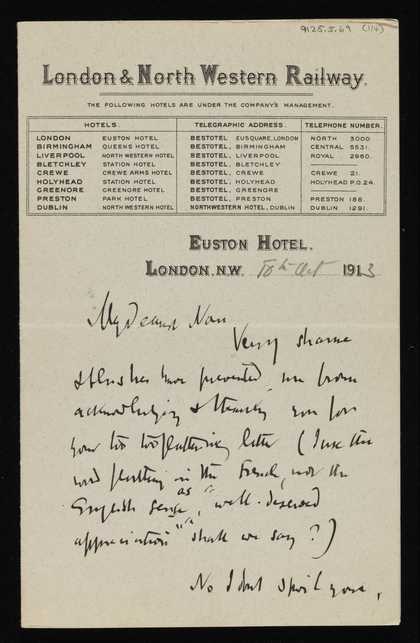 9125.5.69 (1/4)
London & North Western Railway.
THE FOLLOWING HOTELS ARE UNDER THE COMPANY'S MANAGEMENT.
HOTELS. TELEGRAPHIC ADDRESS. TELEPHONE NUMBER.
LONDON EUSTON HOTEL BESTOTEL, EUSQUARE, LONDON NORTH 3000
BIRMINGHAM QUEENS HOTEL BESTOTEL, BIRMINGHAM CENTRAL 5531.
LIVERPOOL NORTH WESTERN HOTEL BESTOTEL, LIVERPOOL ROYAL 2960.
BLETCHLEY STATION HOTEL BESTOTEL, BLETCHLEY
CREWE CREWE ARMS HOTEL BESTOTEL, CREWE CREWE 21.
HOLYHEAD STATION HOTEL BESTOTEL, HOLYHEAD HOLYHEAD P.O.24.
GREENORE GREENORE HOTEL BESTOTEL, GREENORE
PRESTON PARK HOTEL BESTOTEL, PRESTON PRESTON 186.
DUBLIN NORTH WESTERN HOTEL NORTHWESTERN HOTEL, DUBLIN DUBLIN 1291.
EUSTON HOTEL.
LONDON, N.W. 18th Oct 1913
My dearest Nan
Very shame
& blushes have prevented me from
acknowledging & thanking you for
your too too flattering letter (I use the
word flattering in the French, not the
English sense, as "well-deserved
appreciation" shall we say?)
No I don't spoil you,